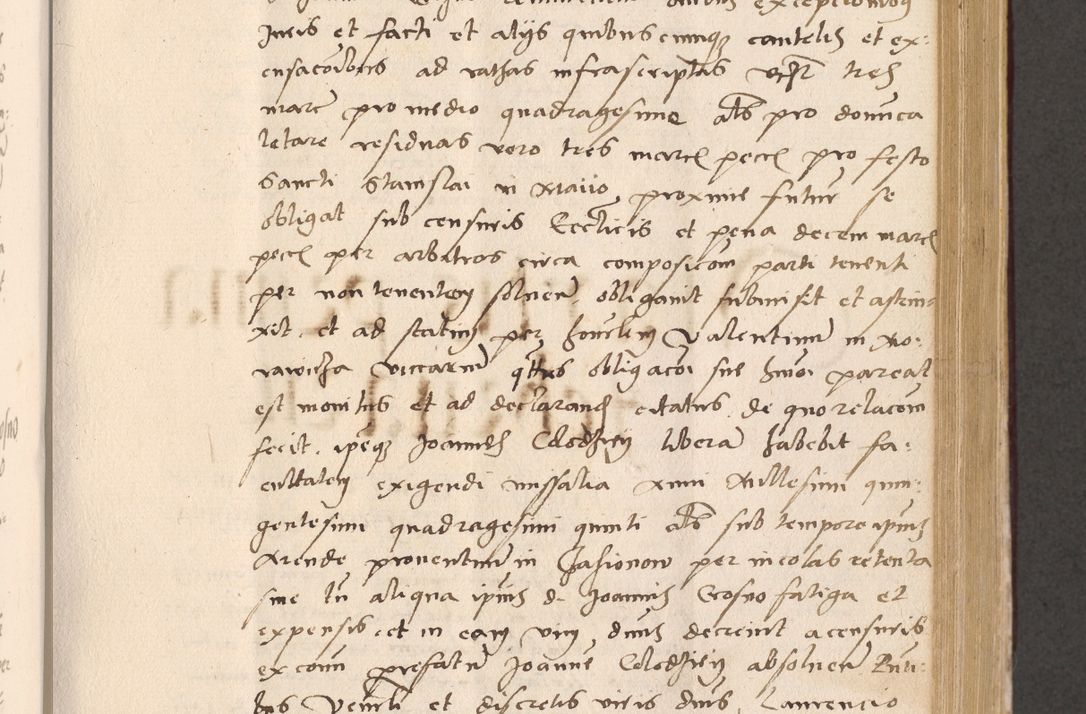 exceptionibus
Juris et facti et alijs quibuscumque cautelis et ex:
cusacoibus ad rathas infrascriptas vz tres
marc pro medio quadragesime als pro donica
letare residuas vero tres marc pecc pro festo
Sancti Stanislai in Maijo proxime futur se
obligat sub censuris Ecclicis et pena decem marc
pecc per arbitros circa composicom parti tenenti
per non tenentem soluen obligauit submisit et astrin:
xit. et ad statim per honorlem Valentinum in Mo:
rawicza viccarium qtus obligacoi sue hmoi pareat
est monitus et ad declarand citatus. de quo relacom
fecit. ipeque Joannes Colodziey libera habebit fa:
cultatem exigendi missalia Anni Millesimi quin:
gentesimi quadragesimi quinti als sub tempore ipius
Arende prouentuum in Jasionow per incolas retenta
sine tn aliqua ipius d. Joannis Crosno fatiga et
expensis. et in eam vim dnus decreuit a censuris
excoum prefatum Joannem Colodziey absoluen
bus Venerli et discretis viris dnis Laurencio